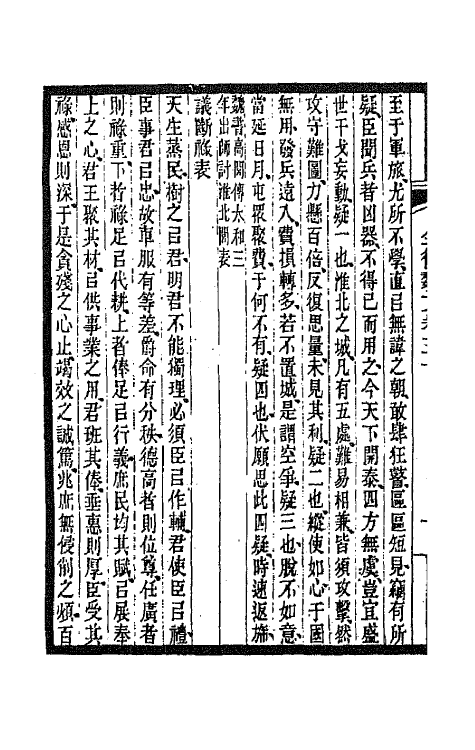 至于軍旅尤所不學直㠯無諱之朝敢肆狂瞽區區短見竊有所
疑臣聞兵者凶器不得已而用之今天下開泰四方無虞豈宜盛
世干戈妄動疑一也淮北之城凡有五處難易相兼皆須攻擊然
攻守難圖力懸百倍反復思量未見其利疑二也縱使如心于國
無用發兵遠入費損轉多若不置城是謂空爭疑三也脫不如意
當延日月屯眾聚費于何不有疑四也伏願思此四疑時速返旆
魏書高閭傳太和三
年出師討淮北閭表
議斷祿表
天生蒸民樹之㠯君明君不能獨理必須臣㠯作輔君使臣㠯禮
臣事君㠯忠故車服有等差爵命有分秩德高者則位尊任廣者
則祿重下者祿足㠯代耕上者俸足㠯行義庶民均其賦㠯展奉
上之心君王聚其材㠯供事業之用君班其俸垂惠則厚臣受其
祿感恩則深于是貪殘之心止竭效之誠篤兆庶無侵削之煩百